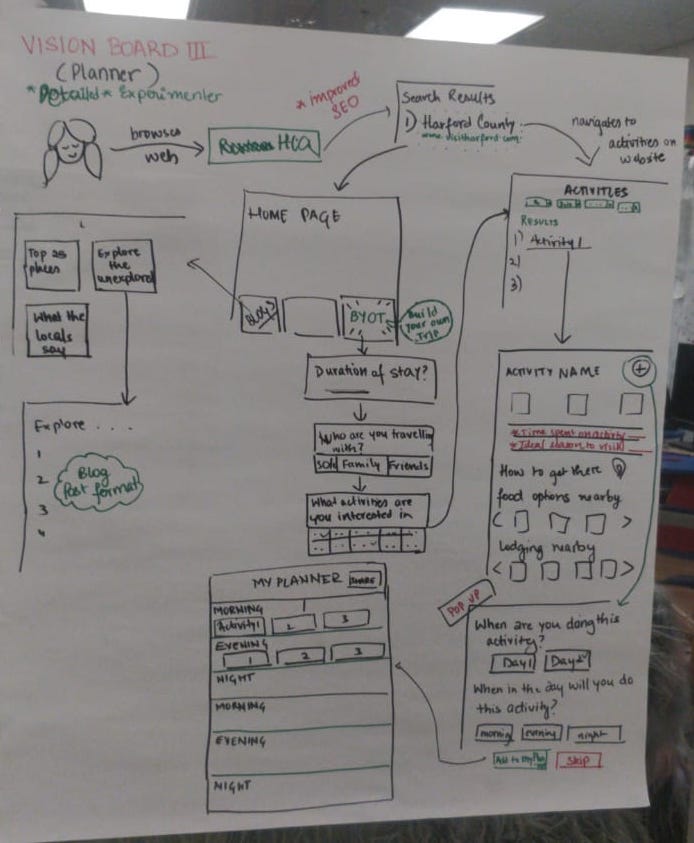 VISION BOARD III
(Planner)
*Detailed* Experimenter
browses
web
HCA
* improved
SEO
Search Results
1) Harford County
www.visitharford.com
navigates to
activities on
website
ACTIVITIES
RESULTS
1) Activity 1
2)
3)
HOME PAGE
BLOGS
BYOT
Build
your own
Trip
Top 25
places
Explore
the
unexplored
What the
locals
say
Explore . . .
1
2
3
4
Blog
Post format
Duration of stay?
Who are you travelling
with?
Solo Family Friends
What activities are
you interested in
ACTIVITY NAME
+
* Time spent on activity
* Ideal season to visit
How to get there
food options nearby
< >
Lodging nearby
< >
POP UP
When are you doing this
activity?
Day 1 Day 2
When in the day will you do
this activity?
morning evening night
Add to My Plan Skip
MY PLANNER SHARE
MORNING
Activity 1 2 3
EVENING
1 2 3
NIGHT
MORNING
EVENING
NIGHT